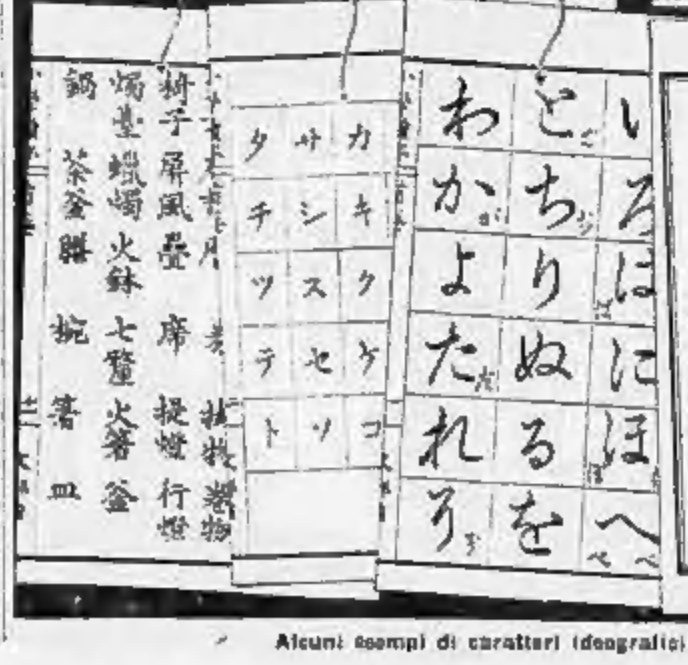 いろはにほへ
とちりぬるを
わかよたれそ
カキクケコ
サシスセソ
タチツテト
椅子 屏風 疊 席 提燈 行燈
燭臺 蠟燭 火鉢 七釐 火箸 釜
鍋 茶釜 膳 椀 箸 皿
Alcuni esempi di caratteri ideografici